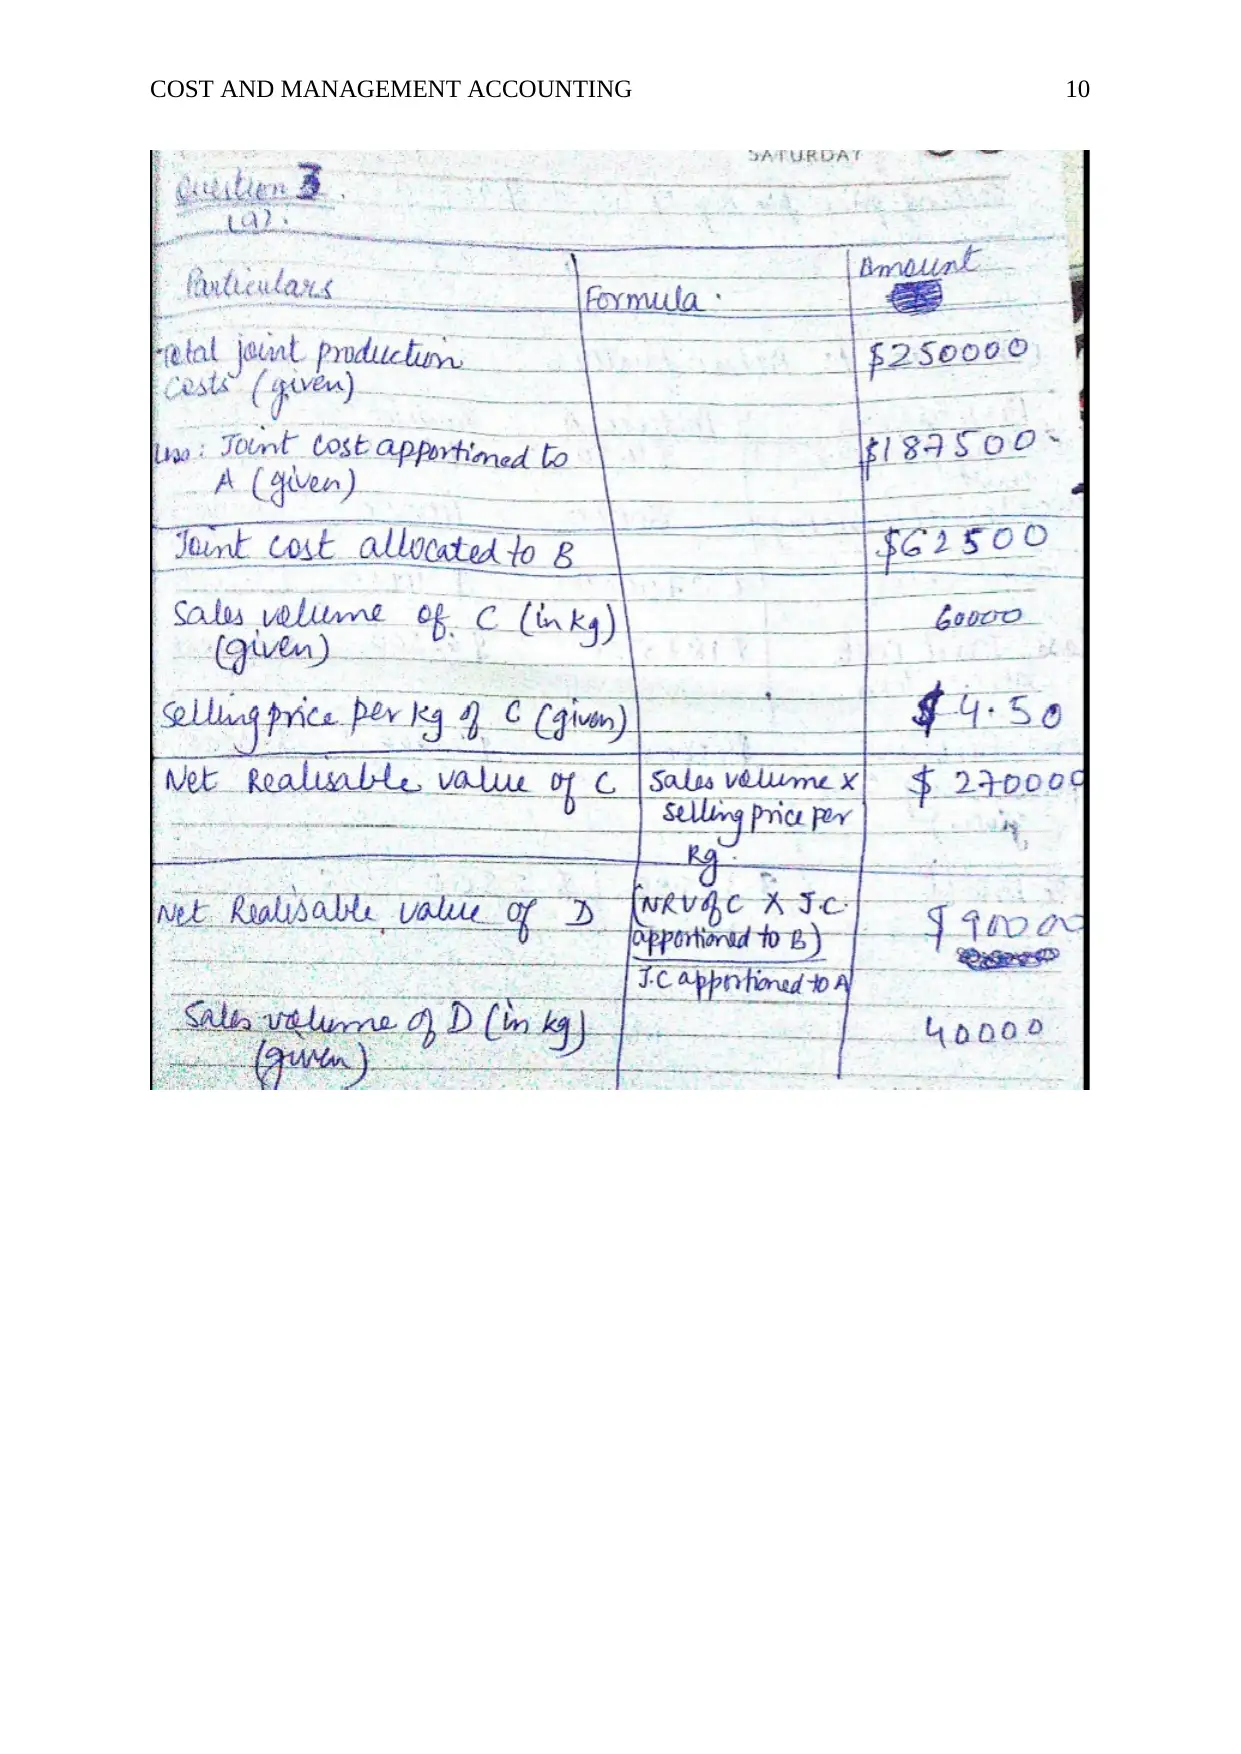 COST AND MANAGEMENT ACCOUNTING 10
SATURDAY
Question 3.
(a).
Particulars Formula. Amount
Total joint production $250000
costs (given)
Less: Joint cost apportioned to $187500
A (given)
Joint cost allocated to B $62500
Sales volume of C (in kg) 60000
(given)
Selling price per kg of C (given) $4.50
Net Realisable value of C Sales volume x $270000
selling price per
Kg.
Net Realisable value of D (NRV of C X J.C. $90000
apportioned to B)
J.C apportioned to A
Sales volume of D (in kg) 40000
(given)